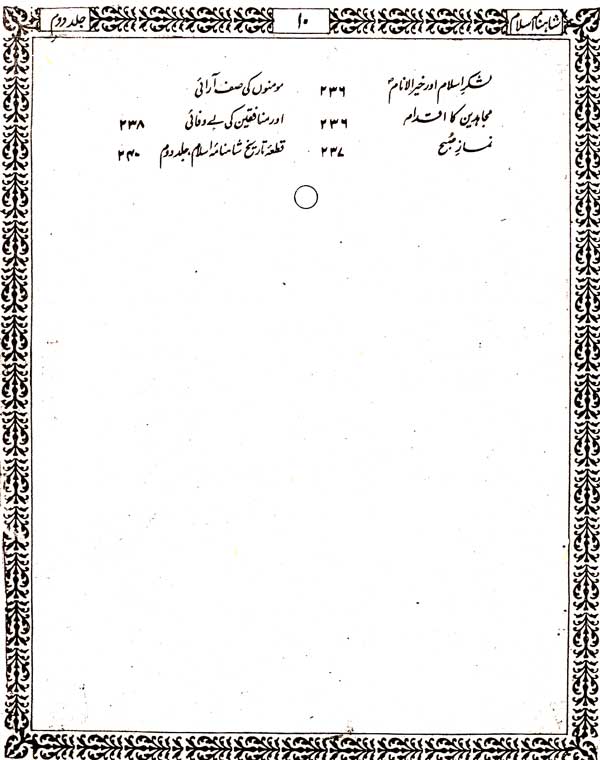 شاہنامہ اسلام
۱۰
جلد دوم
لشکرِ اسلام اور خیر الانامؐ ۲۳۶
مجاہدین کا اقدام ۲۳۶
نمازِ صُبح ۲۳۷
مومنوں کی صف آرائی
اور منافقین کی بے وفائی ۲۳۸
قطعۂ تاریخ شاہنامۂ اسلام، جلد دوم ۲۴۰